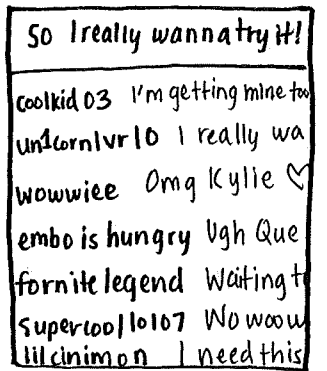 So I really wanna try it!
coolkid03 I'm getting mine too
un1cornlvr10 I really wa
wowwiee Omg Kylie ♡
embo is hungry Ugh Que
fornite legend Waiting t
supercool10107 Wowoow
lilcinimon I need this